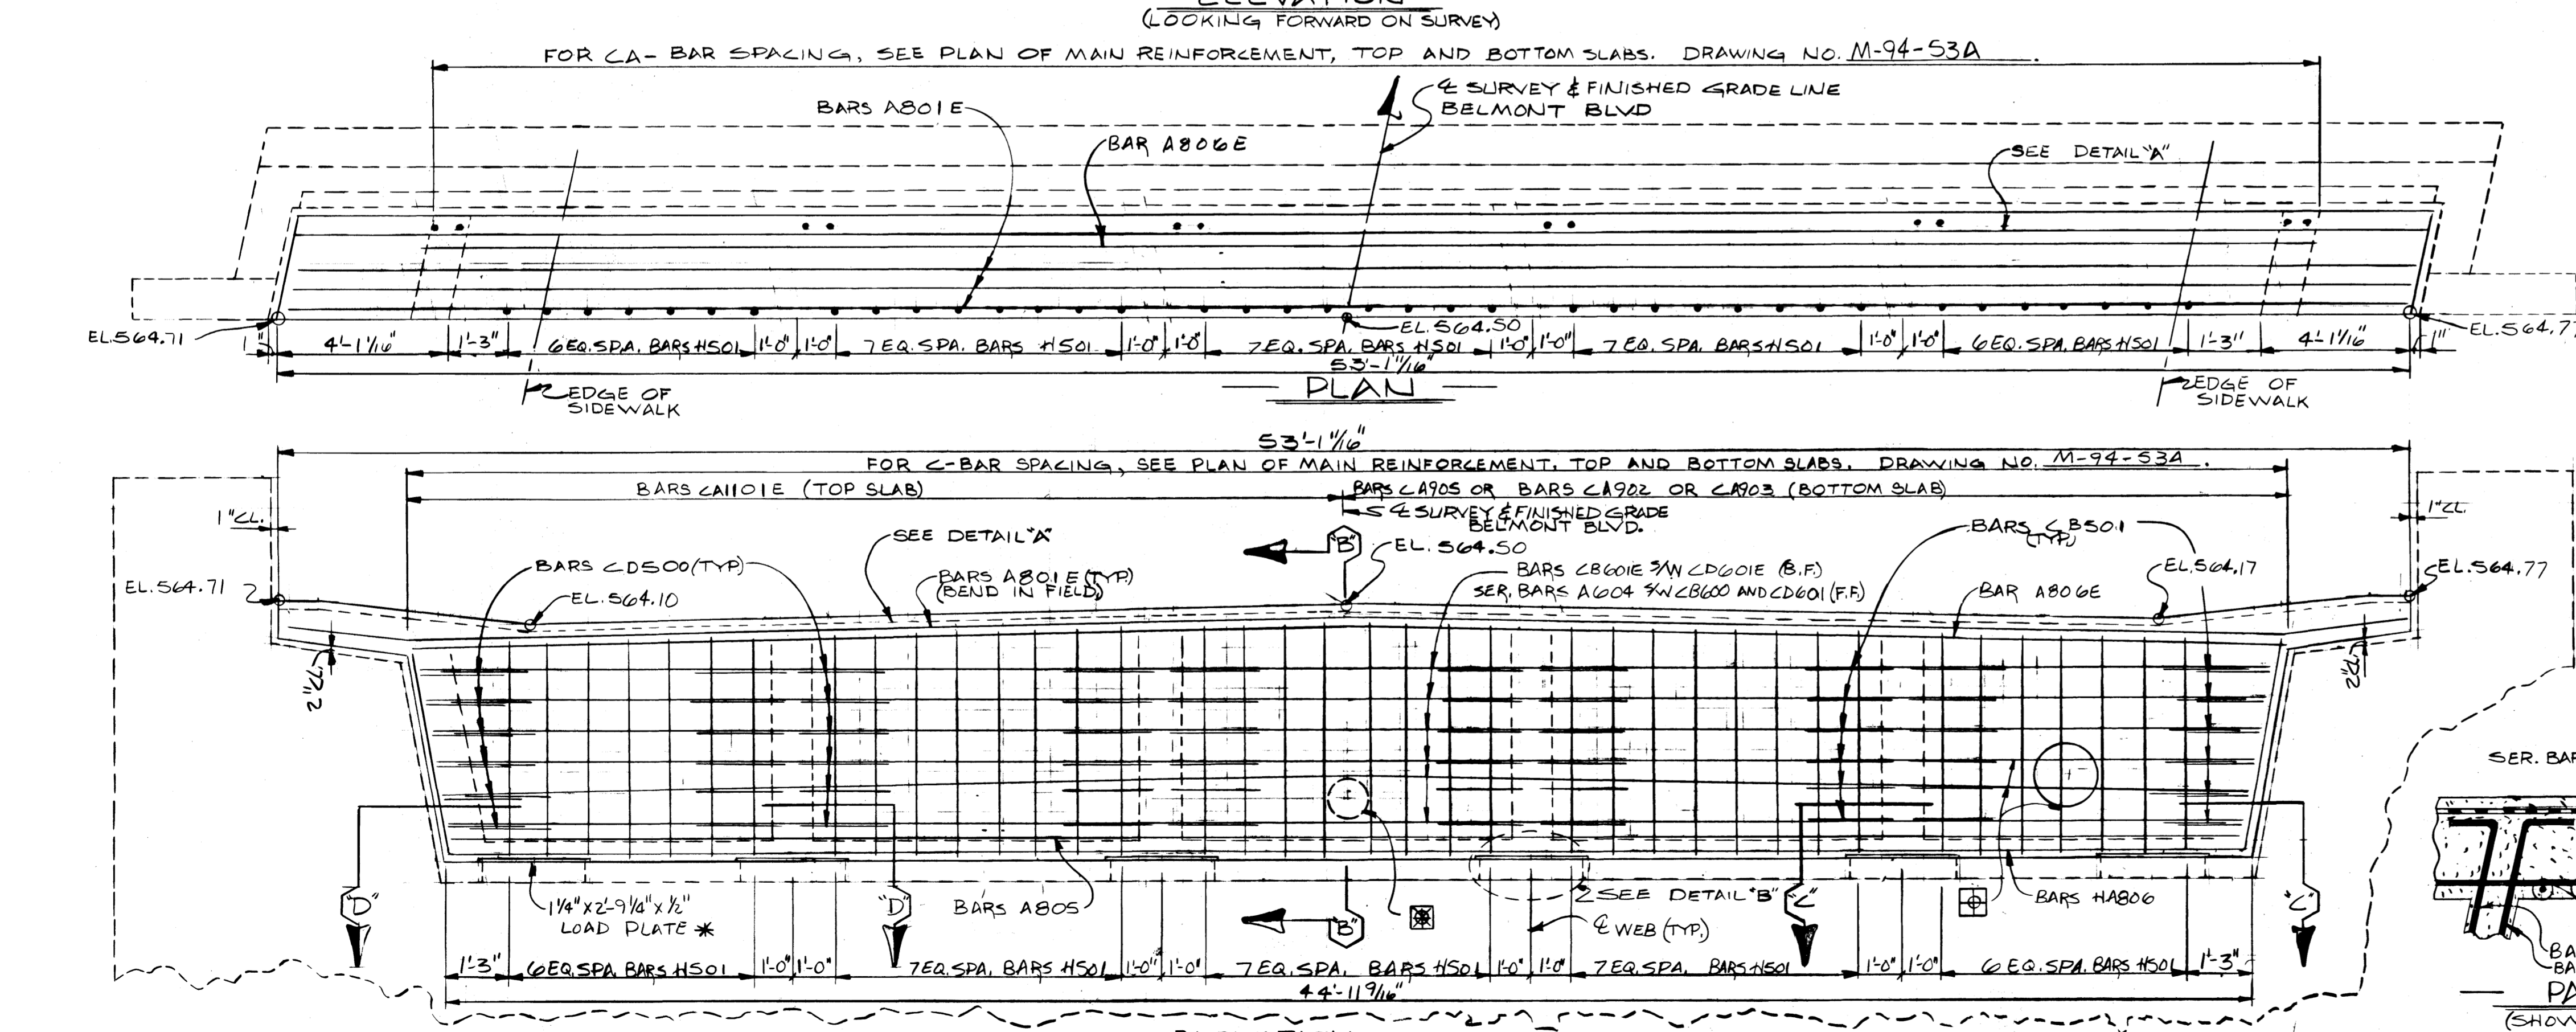 ELEVATION
(LOOKING FORWARD ON SURVEY)
FOR CA- BAR SPACING, SEE PLAN OF MAIN REINFORCEMENT, TOP AND BOTTOM SLABS. DRAWING NO. M-94-53A.
BARS A801E
℄ SURVEY & FINISHED GRADE LINE
BELMONT BLVD
BAR A806E
SEE DETAIL "A"
EL.564.71
EL.564.50
EL.564.7
1" 4'-1 1/16" 1'-3" 6 EQ. SPA. BARS H501 1'-0" 1'-0" 7 EQ. SPA. BARS H501 1'-0" 1'-0" 7 EQ. SPA. BARS H501 1'-0" 1'-0" 7 EQ. SPA. BARS H501 1'-0" 1'-0" 6 EQ. SPA. BARS H501 1'-3" 4'-1 1/16" 1"
53'-1 11/16"
PLAN
EDGE OF
SIDEWALK
EDGE OF
SIDEWALK
53'-1 11/16"
FOR C-BAR SPACING, SEE PLAN OF MAIN REINFORCEMENT, TOP AND BOTTOM SLABS. DRAWING NO. M-94-53A.
BARS CA1101E (TOP SLAB)
BARS CA905 OR BARS CA902 OR CA903 (BOTTOM SLAB)
℄ SURVEY & FINISHED GRADE
BELMONT BLVD.
1" CL.
1" CL.
SEE DETAIL "A"
"B"
EL. 564.50
BARS CB501
(TYP.)
BARS CD500 (TYP.)
BARS A801E (TYP.)
(BEND IN FIELD)
BARS CB601E S/W CD601E (B.F.)
SER. BARS A604 S/W CB600 AND CD601 (F.F.)
EL.564.17
EL.564.77
EL.564.71
EL.564.10
BAR A806E
2" CL.
2" CL.
SER. BAR
"D"
1 1/4" X 2'-9 1/4" X 1/2"
LOAD PLATE *
"D"
BARS A805
"B"
SEE DETAIL "B"
℄ WEB (TYP.)
"C"
BARS HA806
"C"
1'-3" 6 EQ. SPA. BARS H501 1'-0" 1'-0" 7 EQ. SPA. BARS H501 1'-0" 1'-0" 7 EQ. SPA. BARS H501 1'-0" 1'-0" 7 EQ. SPA. BARS H501 1'-0" 1'-0" 6 EQ. SPA. BARS H501 1'-3"
44'-11 9/16"
BA
BA
PA
(SHOW